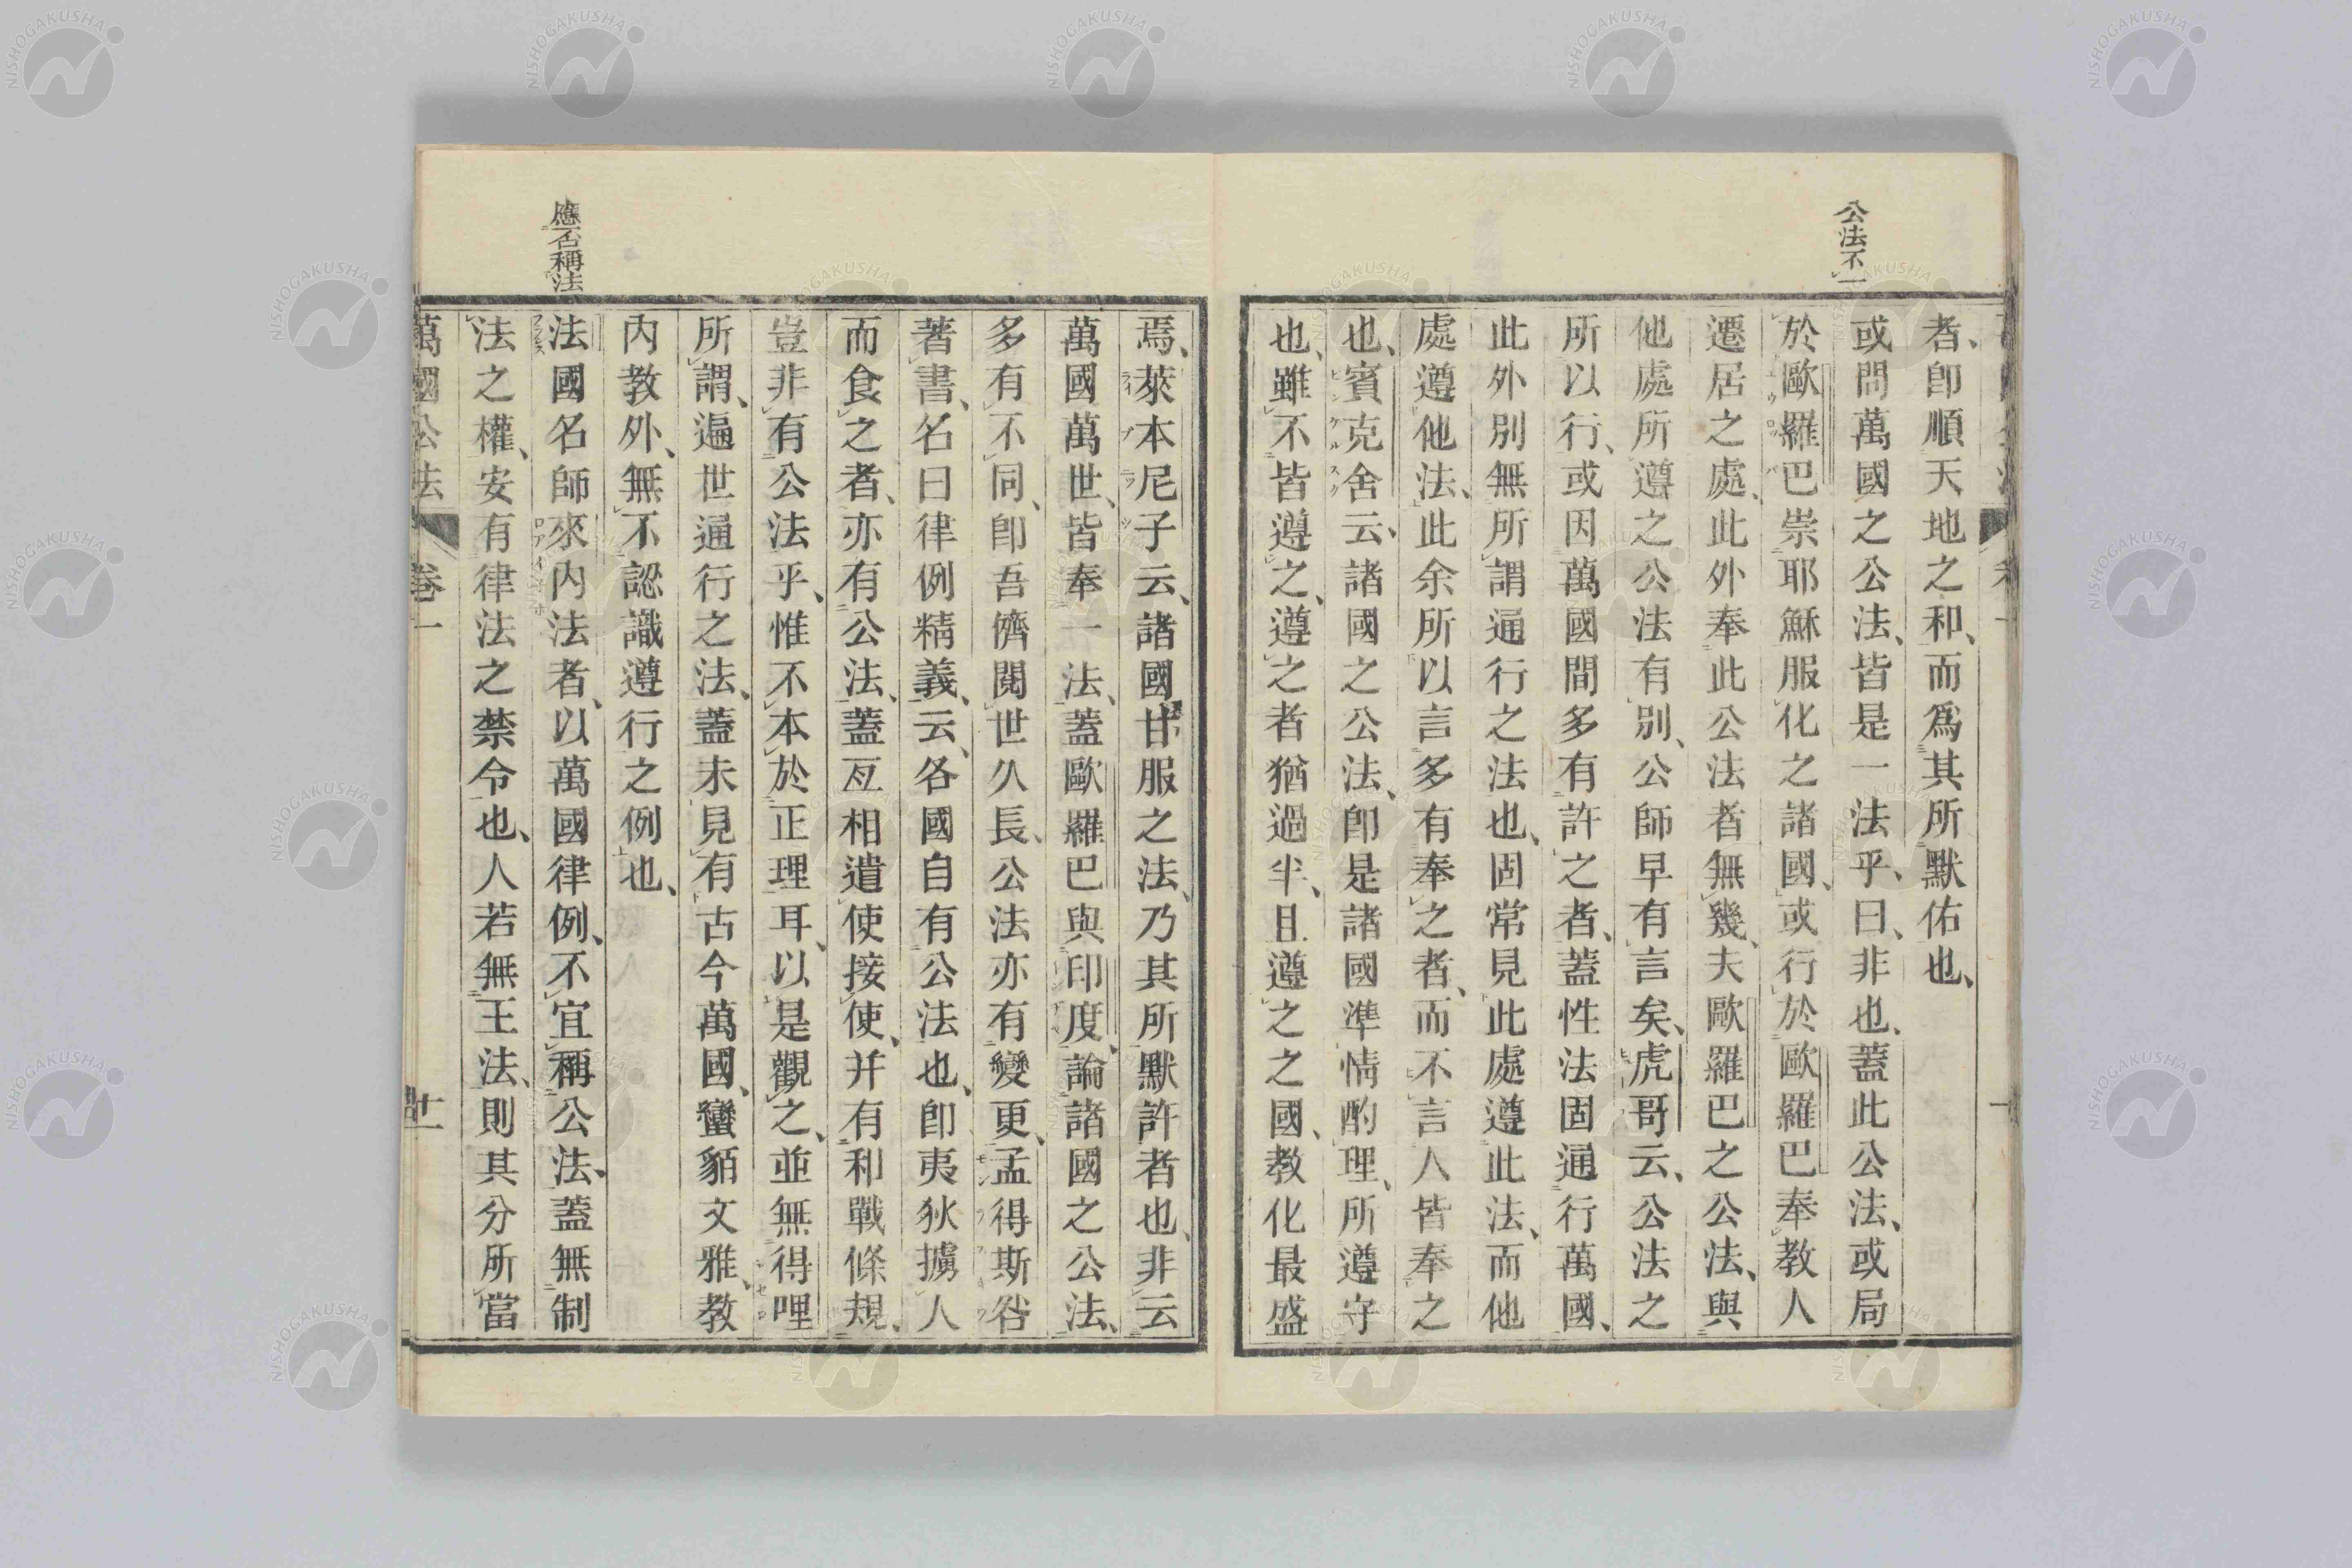 公法不一
者、卽順天地之和、而爲其所默佑也、
或問萬國之公法、皆是一法乎、曰、非也、蓋此公法、或局
於歐羅巴崇耶穌服化之諸國、或行於歐羅巴奉教人
遷居之處、此外奉此公法者無幾、夫歐羅巴之公法、與
他處所遵之公法有別、公師早有言矣、虎哥云、公法之
所以行、或因萬國間多有許之者、蓋性法固通行萬國、
此外別無所謂通行之法也、固常見此處遵此法、而他
處遵他法、此余所以言多有奉之者、而不言人皆奉之
也、賓克舍云、諸國之公法、卽是諸國準情酌理、所遵守
也、雖不皆遵之、遵之者猶過半、且遵之之國、教化最盛
焉、萊本尼子云、諸國甘服之法、乃其所默許者也、非云
萬國萬世、皆奉一法、蓋歐羅巴與印度、論諸國之公法、
多有不同、卽吾儕閱世久長、公法亦有變更、孟得斯咎
著書、名曰律例精義、云、各國自有公法也、卽夷狄擄人
而食之者、亦有公法、蓋互相遣使接使、并有和戰條規、
豈非有公法乎、惟不本於正理耳、以是觀之、並無得哩
所謂、遍世通行之法、蓋未見有古今萬國、蠻貊文雅、教
內教外、無不認識遵行之例也、
應否稱法
法國名師來內法者、以萬國律例、不宜稱公法、蓋無制
法之權、安有律法之禁令也、人若無王法、則其分所當
萬國公法 卷一 十一
NISHOGAKUSHA